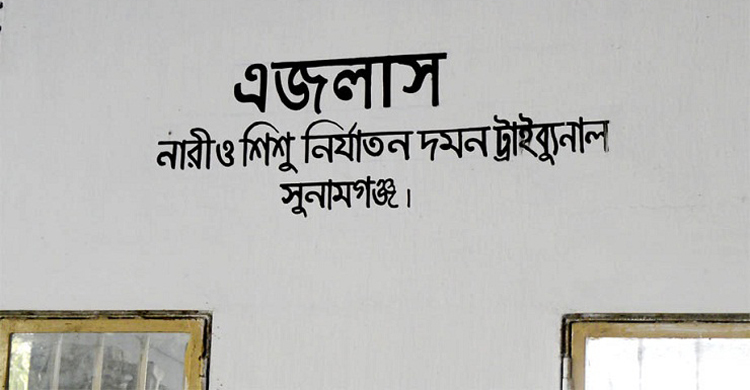 এজলাস
নারী ও শিশু নির্যাতন দমন ট্রাইব্যুনাল
সুনামগঞ্জ।